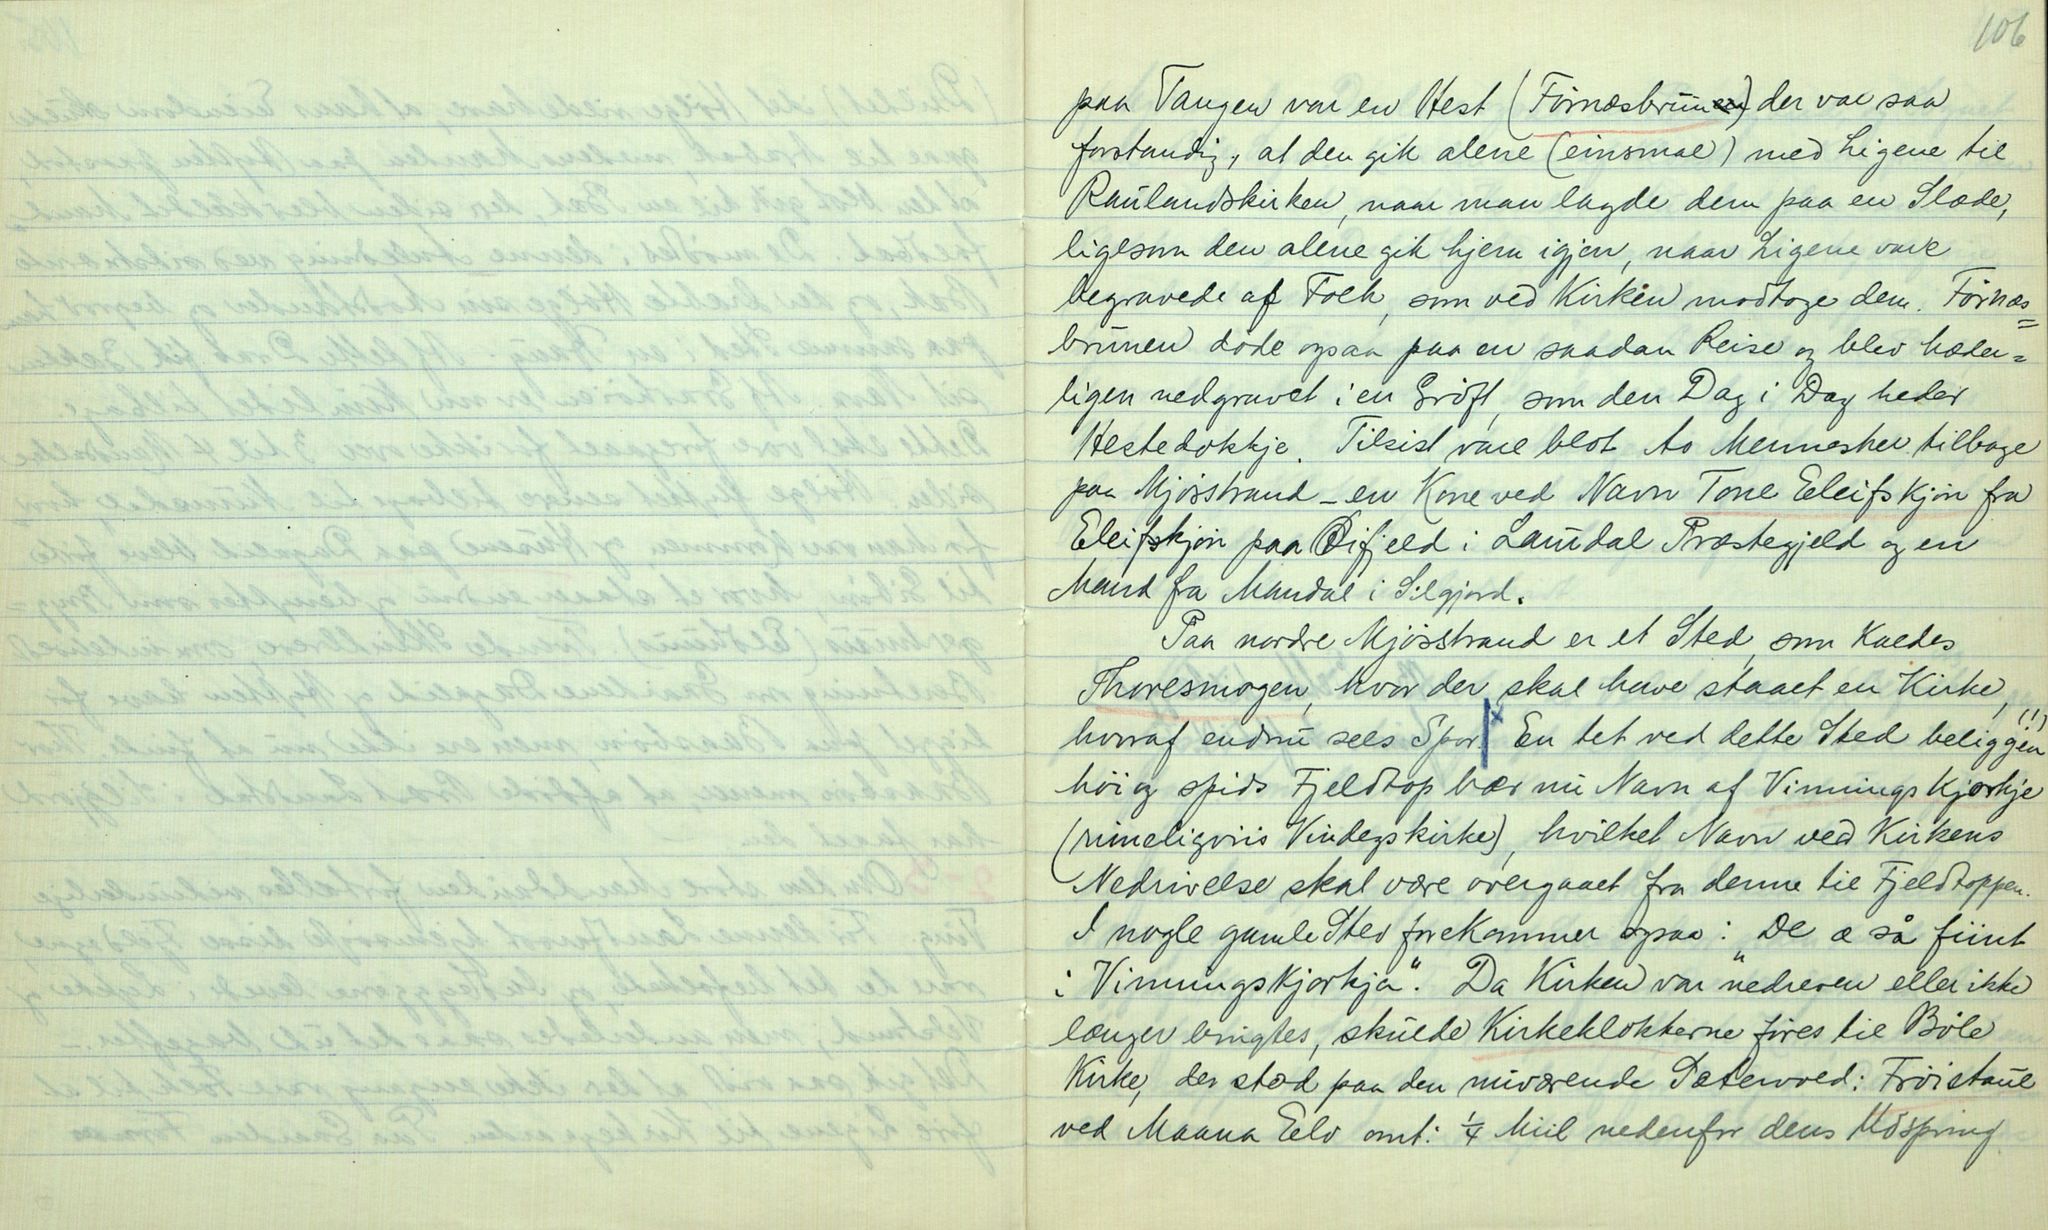 106
paa Tangen var en Hest (Förnæsbrunen) der var saa
forstandig, at den gik alene (einsmal) med Ligene til
Raulandskirken, naar man lagde dem paa en Slæde,
ligesom den alene gik hjem igjen, naar Ligene vare
begravede af Folk, som ved Kirken modtoge dem. Förnæs=
brunen döde ogsaa paa en saadan Reise og blev hæder=
ligen nedgravet i en Gröft, som den Dag i Dag heder
Hestedokkje. Tilsist vare blot to Mennesker tilbage
paa Mjösstrand - en Kone ved Navn Tone Eleifskjön fra
Eleifskjön paa Öifjeld i Laurdal Præstegjeld og en
Mand fra Mandal i Silgjord.
Paa nordre Mjösstrand er et Sted, som kaldes
Thoresmogen, hvor der skal have staaet en Kirke,
hvoraf endnu sees Spor. x En tet ved dette Sted beliggen (!)
höi og spids Fjeldtop bær nu Navn af Vinningskjørkje
(rimeligviis Vindegskirke), hvilket Navn ved Kirkens
Nedrivelse skal være overgaaet fra denne til Fjeldtoppen.
I nogle gamle Stev forekommer ogsaa: "De æ så fiint
i Vinningskjørkja". Da Kirken var nedreven eller ikke
længer brugtes, skulde Kirkeklokkerne föres til Böle
Kirke, der stod paa den nuværende Sætervold: Fröistaul
ved Maana Elv omt: 1/4 Miil nedenfor dens Udspring